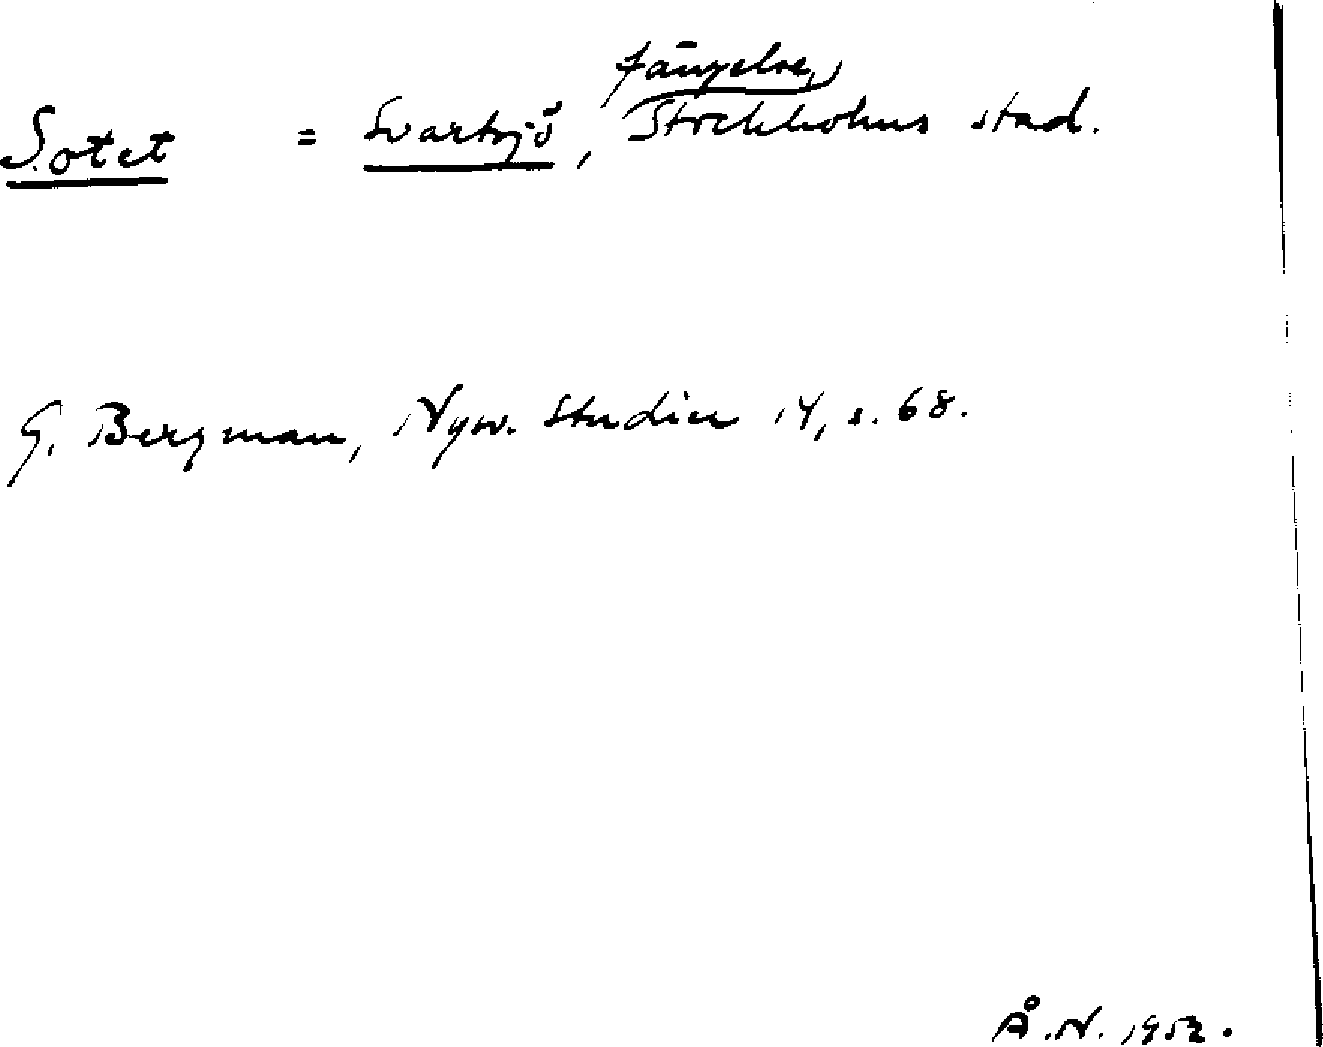 Sotet = Svartsjö, fängelse, Stockholms stad.
G. Bergman, Nysv. Studier 14, s. 68.
Å.N. 1952.